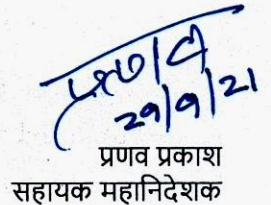 प्रणव
29/9/21
प्रणव प्रकाश
सहायक महानिदेशक